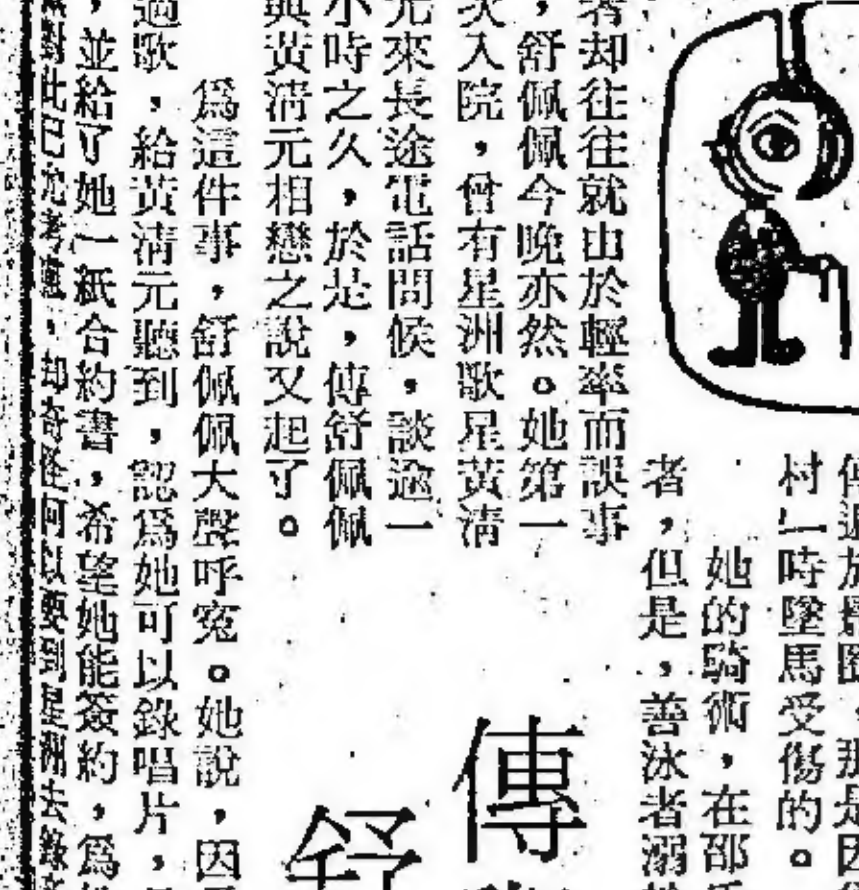 村一時墜馬受傷的。
她的騎術,在邵
者,但是,善泳者溺
者却往往就由於輕率而誤事
,舒佩佩今晚亦然。她第一
次入院,曾有星洲歌星黃清
元來長途電話問候,談逾一
小時之久,於是,傳舒佩佩
與黃清元相戀之說又起了。
爲這件事,舒佩佩大聲呼寃。她說,因
過歌,給黃清元聽到,認爲她可以錄唱片,
,並給了她一紙合約書,希望她能簽約,爲
對此已允考慮,却奇怪何以要到星洲去錄音
傳
舒